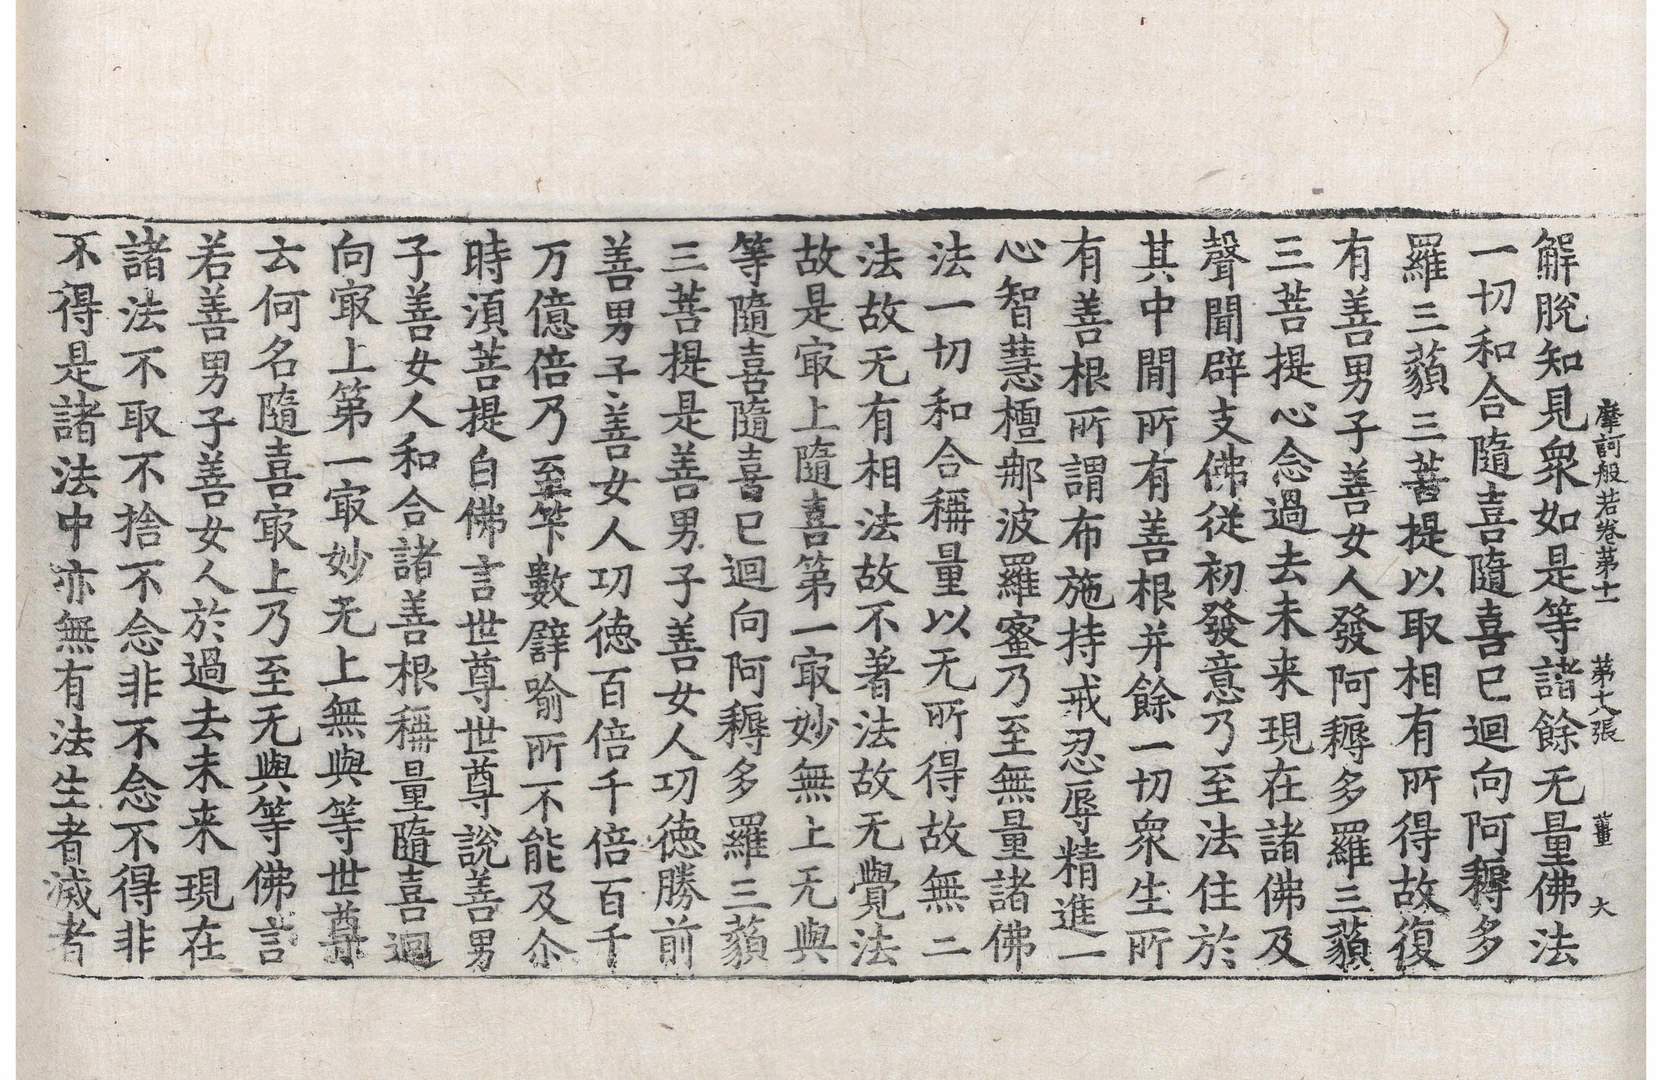 摩訶般若卷第十一 第十八張 薑 大
解脫知見衆如是等諸餘无量佛法
一切和合隨喜隨喜已迴向阿耨多
羅三藐三菩提以取相有所得故復
有善男子善女人發阿耨多羅三藐
三菩提心念過去未来現在諸佛及
聲聞辟支佛從初發意乃至法住於
其中閒所有善根并餘一切衆生所
有善根所謂布施持戒忍辱精進一
心智慧檀那波羅蜜乃至無量諸佛
法一切和合稱量以无所得故無二
法故无有相法故不著法故无覺法
故是㝡上隨喜第一㝡妙無上无與
等隨喜隨喜已迴向阿耨多羅三藐
三菩提是善男子善女人功德勝前
善男子善女人功德百倍千倍百千
万億倍乃至筭數譬喻所不能及尒
時須菩提白佛言世尊世尊說善男
子善女人和合諸善根稱量隨喜迴
向㝡上第一㝡妙无上無與等世尊
云何名隨喜㝡上乃至无與等佛言
若善男子善女人於過去未来現在
諸法不取不捨不念非不念不得非
不得是諸法中亦無有法生者滅者